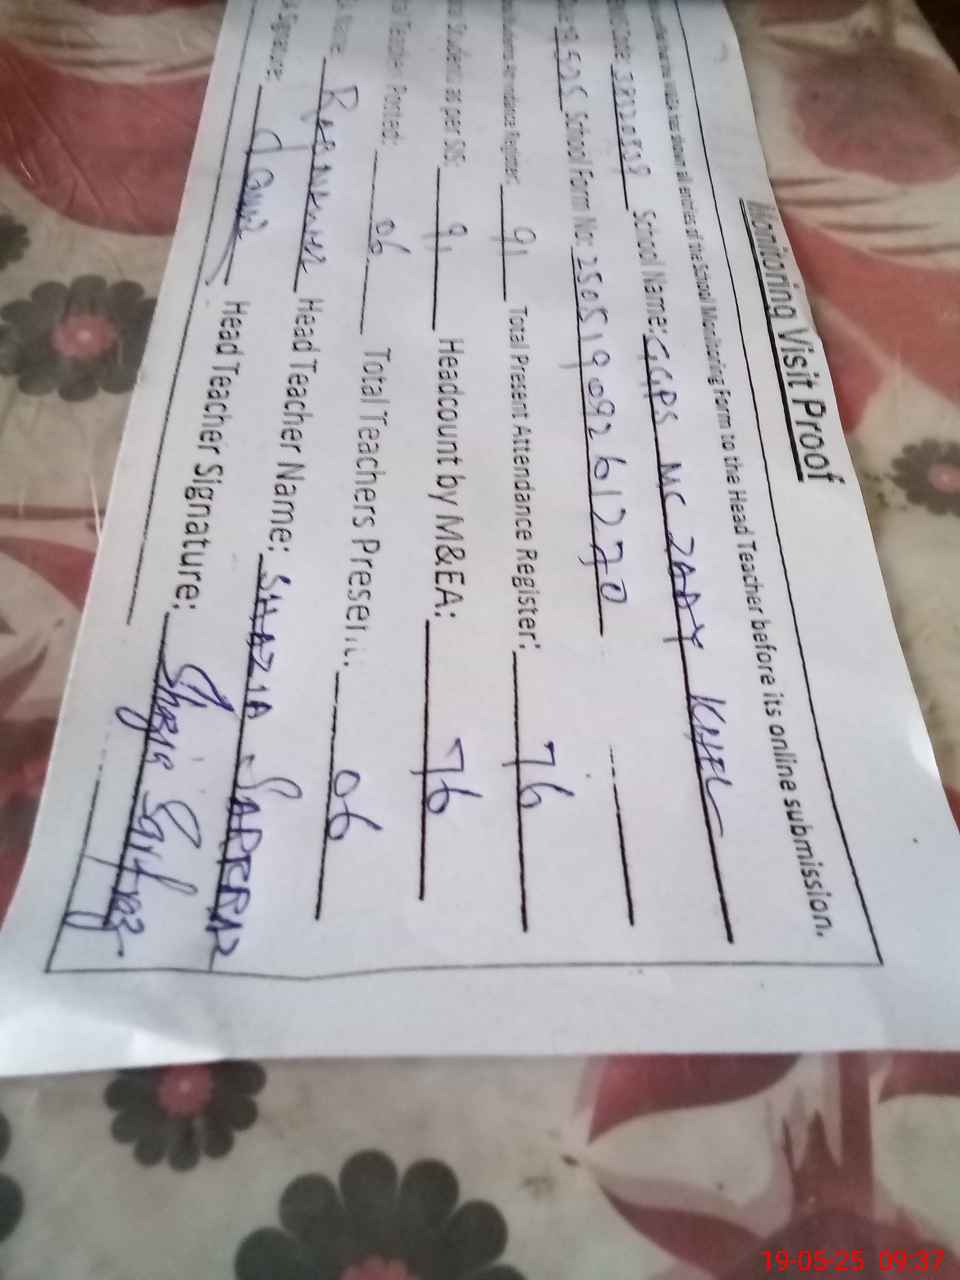 Monitoring Visit Proof
shown all entries of the School Monitoring Form to the Head Teacher before its online submission.
School Name: GGPS MC ZADY KHEL
School Form No: 25051909261270
Attendance Register: 91 Total Present Attendance Register: 76
Students as per SIS: 91 Headcount by M&EA: 76
Teachers Posted: 06 Total Teachers Present: 06
Name: Head Teacher Name: SHAZIA SARFRAZ
Signature: Head Teacher Signature: Shazia Sarfraz
19-05-25 09:37